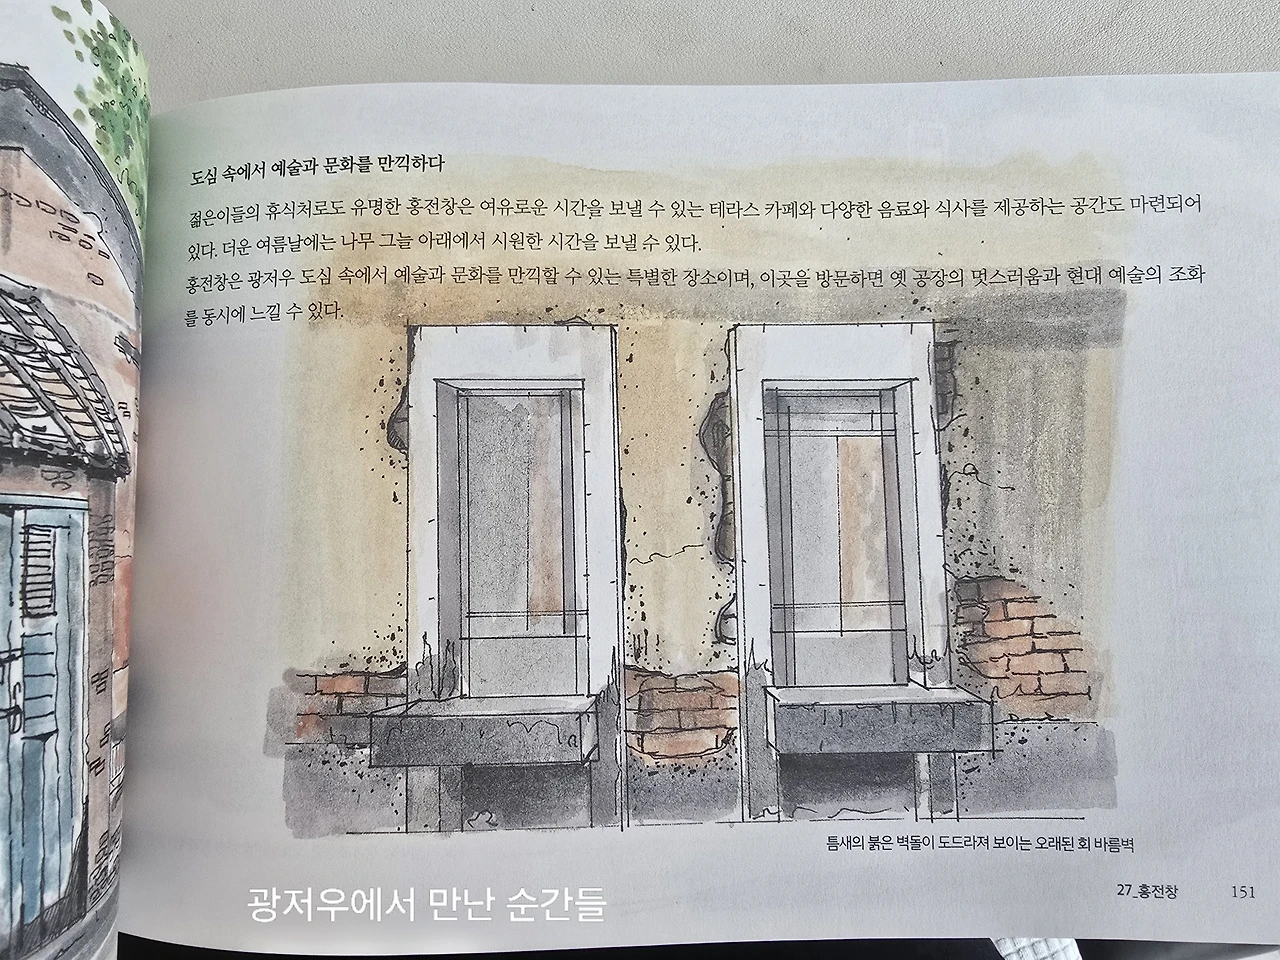 도심 속에서 예술과 문화를 만끽하다
젊은이들의 휴식처로도 유명한 홍전창은 여유로운 시간을 보낼 수 있는 테라스 카페와 다양한 음료와 식사를 제공하는 공간도 마련되어
있다. 더운 여름날에는 나무 그늘 아래에서 시원한 시간을 보낼 수 있다.
홍전창은 광저우 도심 속에서 예술과 문화를 만끽할 수 있는 특별한 장소이며, 이곳을 방문하면 옛 공장의 멋스러움과 현대 예술의 조화
를 동시에 느낄 수 있다.
틈새의 붉은 벽돌이 도드라져 보이는 오래된 회 바름벽
광저우에서 만난 순간들
27_홍전창 151